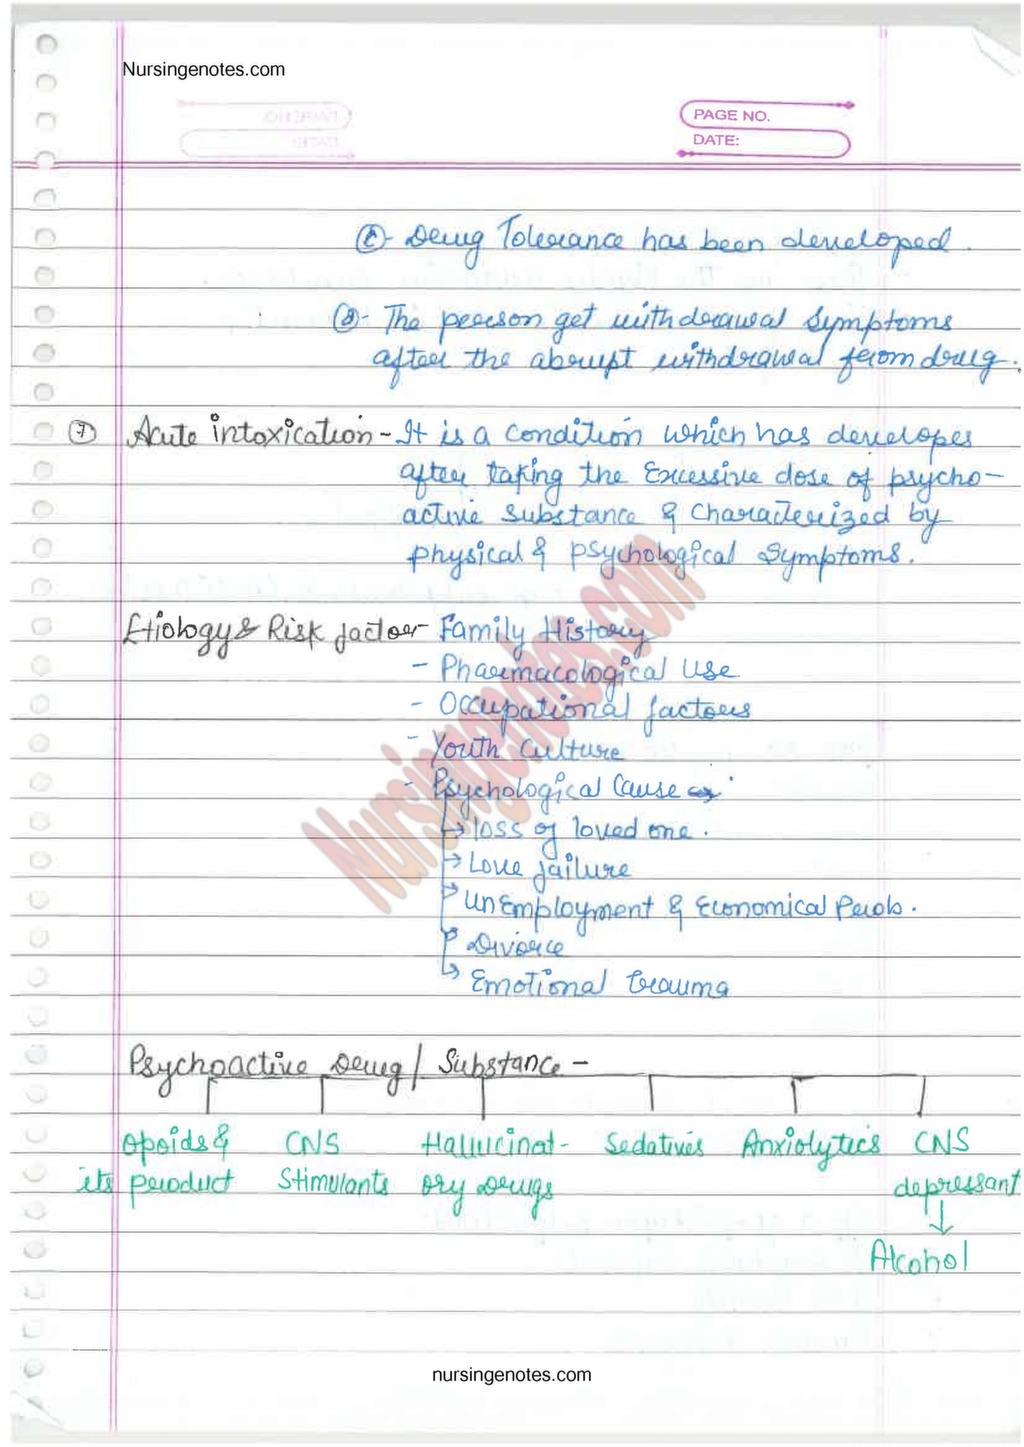 Nursingenotes.com
PAGE NO.
DATE:
(c)- Drug Tolerance has been developed.
(d)- The person get withdrawal symptoms
after the abrupt withdrawal from drug.
(7) Acute intoxication - It is a condition which has developes
after taking the Excessive dose of psycho-
active substance & characterized by
physical & psychological symptoms.
Etiology & Risk factor - Family History
- Pharmacological use
- Occupational factors
- Youth culture
- Psychological cause
→ loss of loved one.
→ Love failure
→ unEmployment & Economical Prob.
→ Divorce
→ Emotional trauma
Psychoactive Drug / Substance -
opoids & CNS Hallucinat- Sedatives Anxiolytics CNS
its product Stimulants ory Drugs depressant
↓
Alcohol
Nursingenotes.com
nursingenotes.com